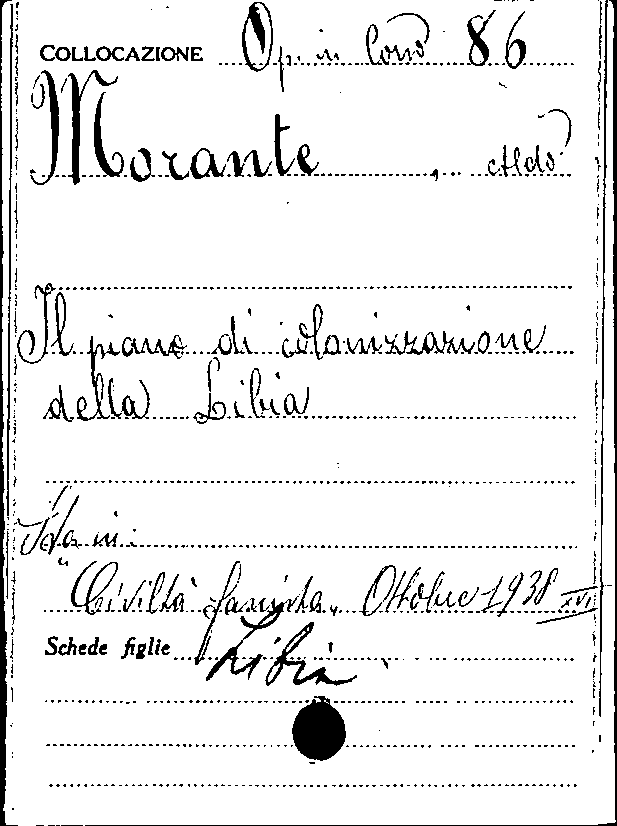 COLLOCAZIONE Op. in Cons 86
Morante, Aldo
Il piano di colonizzazione
della Libia
Sta in:
"Civiltà fascista" Ottobre 1938 XVI
Schede figlie Libia